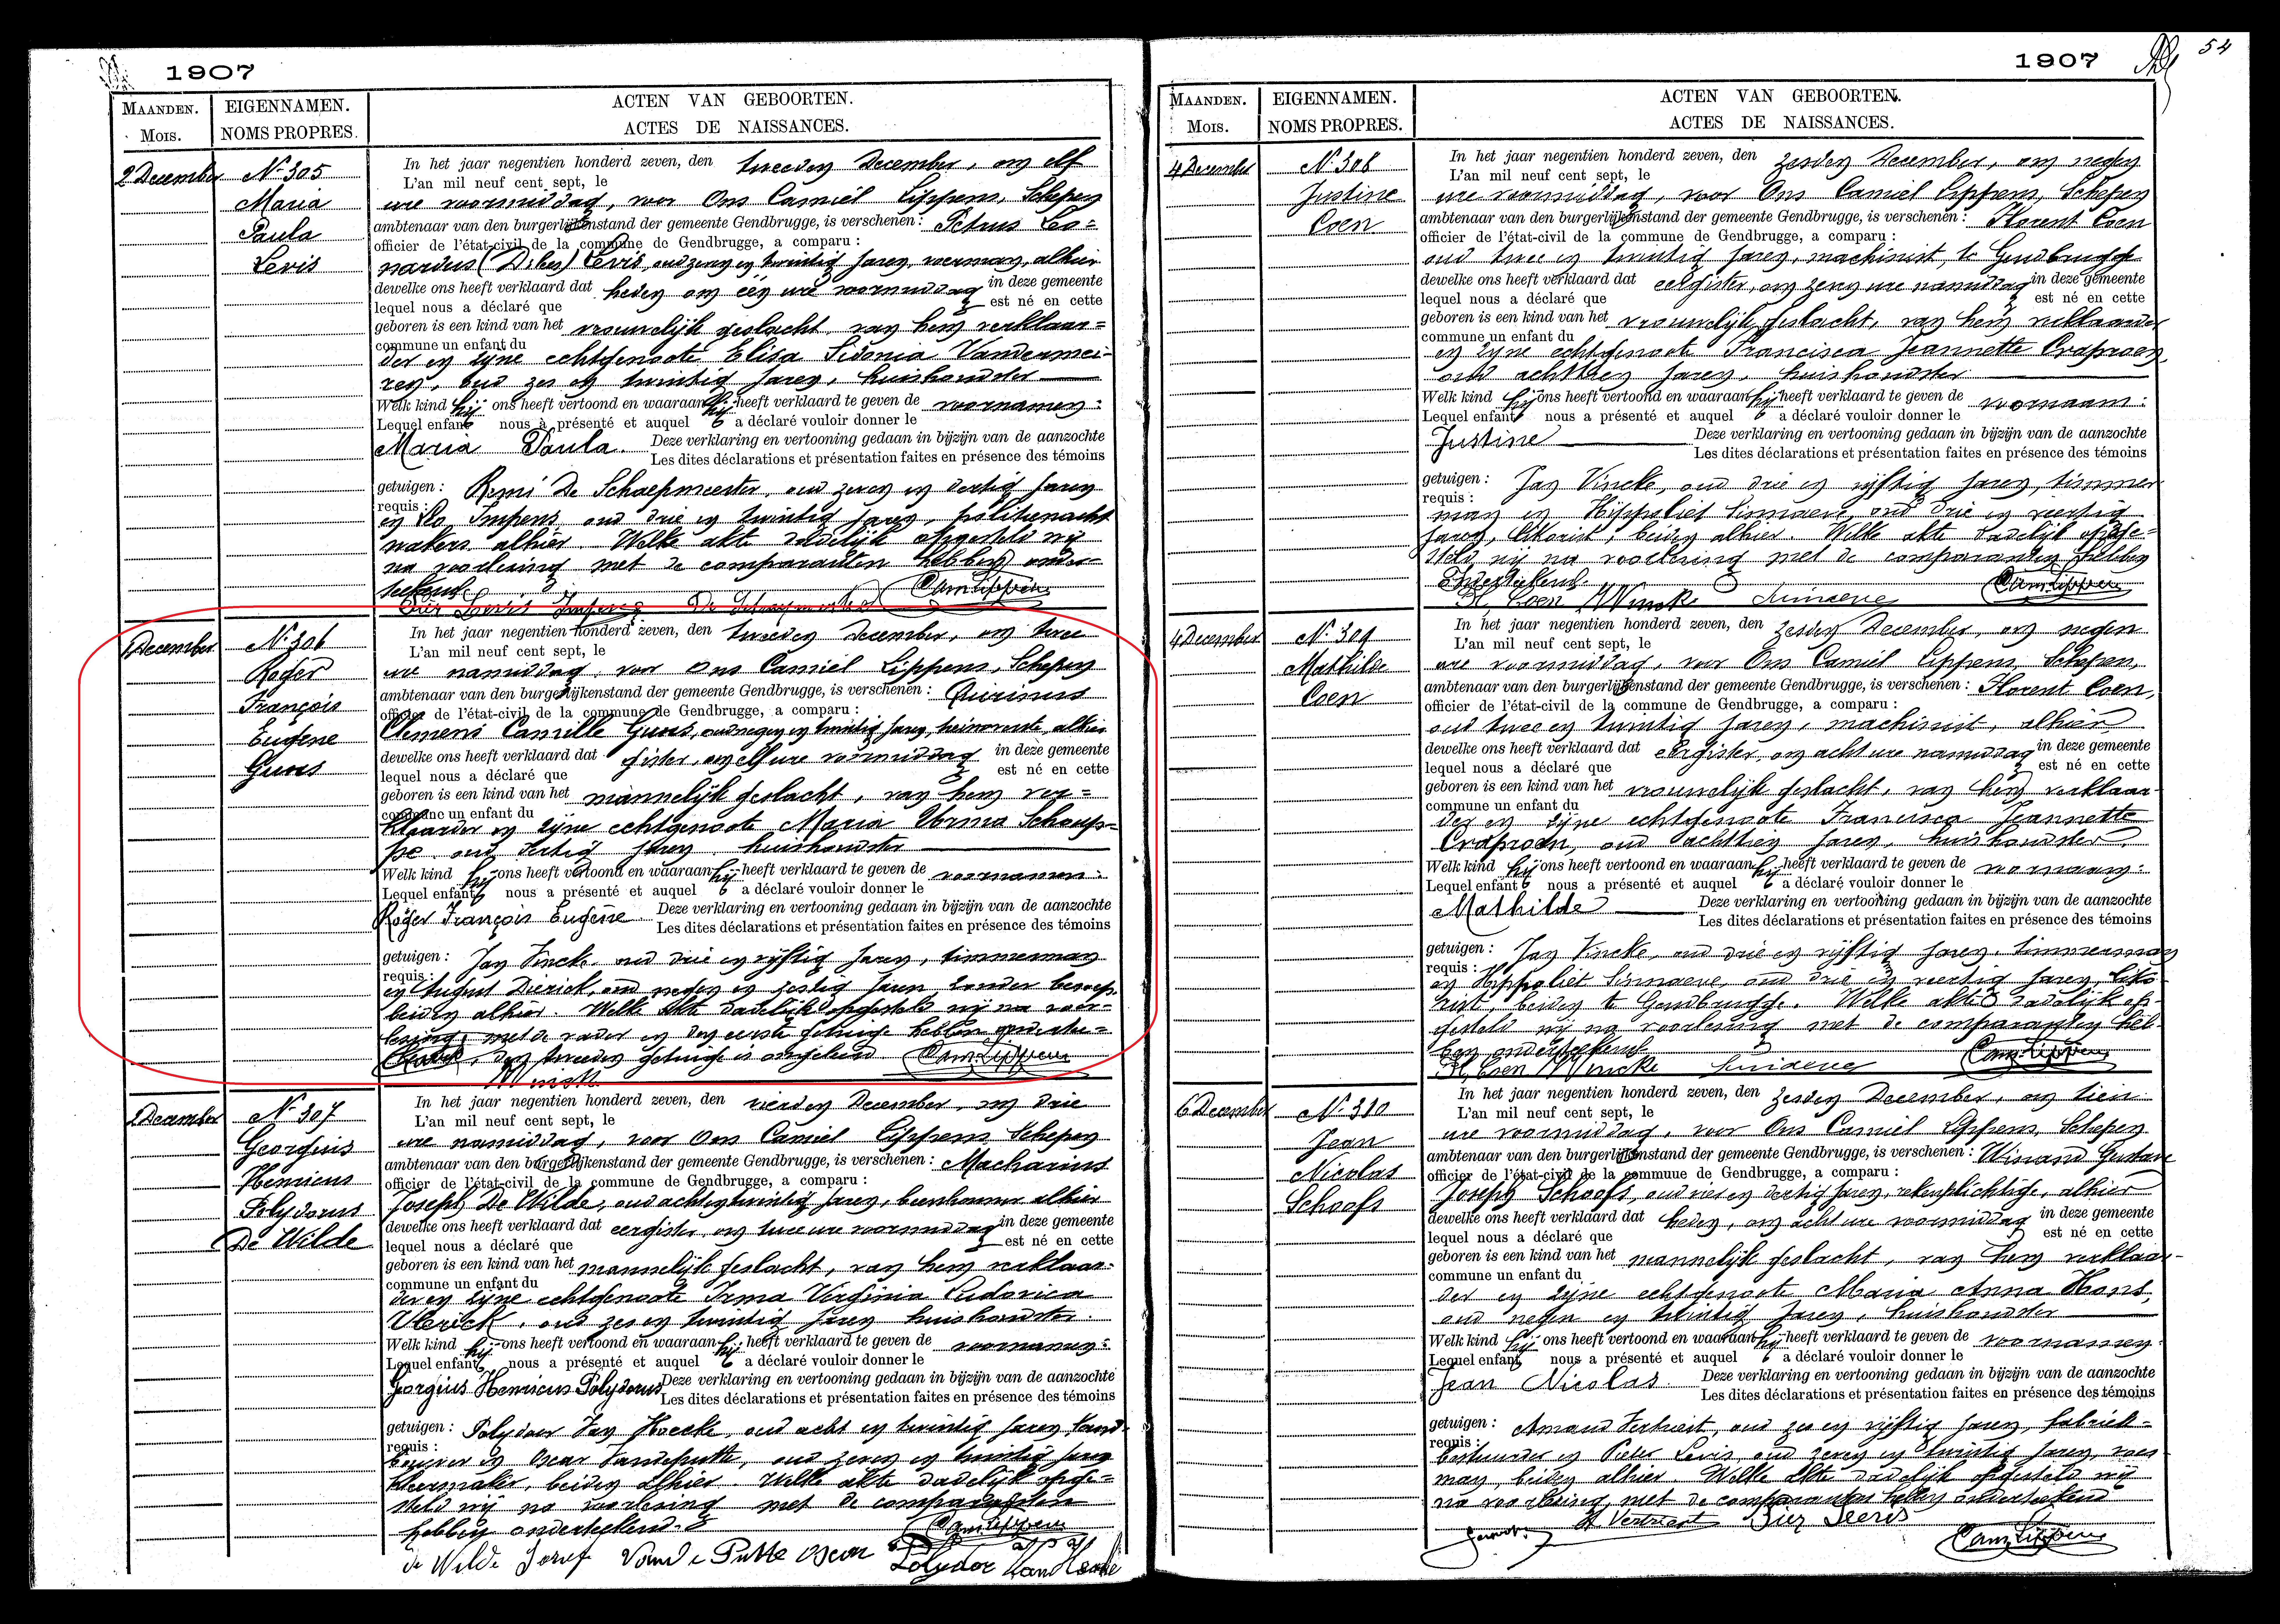 1907
MAANDEN.
Mois.
EIGENNAMEN.
NOMS PROPRES.
ACTEN VAN GEBOORTEN.
ACTES DE NAISSANCES.
2 December
N. 305
Maria
Paula
Levis
In het jaar negentien honderd zeven, den tweeden December, om elf
L'an mil neuf cent sept, le
ure voormiddag, voor Ons Camiel Lippens, Schepen
ambtenaar van den burgerlijkenstand der gemeente Gendbrugge, is verschenen: Petrus Leo=
officier de l'état-civil de la commune de Gendbrugge, a comparu :
nardus Levis, oud zeven en twintig jaren, alhier
dewelke ons heeft verklaard dat heden om één ure voormiddag in deze gemeente
lequel nous a déclaré que est né en cette
geboren is een kind van het vrouwelijk geslacht, van hem verklaar=
commune un enfant du
der en zijne echtgenoote Elisa Sidonia Vandermei-
ren, oud zes en twintig jaren, huishoudster
Welk kind hij ons heeft vertoond en waaraan hij heeft verklaard te geven de voornamen:
Lequel enfant nous a présenté et auquel a déclaré vouloir donner le
Maria Paula. Deze verklaring en vertooning gedaan in bijzijn van de aanzochte
Les dites déclarations et présentation faites en présence des témoins
getuigen : Remi De Schaepmeester, oud zeven en dertig jaren
requis :
en Leo Impens oud drie en twintig jaren, politienacht
wakers alhier. Welke akte dadelijk opgesteld wij
na voorlezing met de comparanten hebben onder-
teekend.
Levis Impens De Schaepmeester Cam Lippens
1 December
N. 306
Roger
François
Eugene
Guns
In het jaar negentien honderd zeven, den tweeden December, om twee
L'an mil neuf cent sept, le
ure namiddag, voor Ons Camiel Lippens, Schepen
ambtenaar van den burgerlijkenstand der gemeente Gendbrugge, is verschenen: Quirinus
officier de l'état-civil de la commune de Gendbrugge, a comparu :
Clemens Camille Guns, oud negen en twintig jaren, alhier
dewelke ons heeft verklaard dat gister, om elf ure voormiddag in deze gemeente
lequel nous a déclaré que est né en cette
geboren is een kind van het mannelijk geslacht, van hem ver=
commune un enfant du
klaarder en zijne echtgenoote Maria Norma Schoup-
pe oud dertig jaren, huishoudster
Welk kind hij ons heeft vertoond en waaraan hij heeft verklaard te geven de voornamen:
Lequel enfant nous a présenté et auquel a déclaré vouloir donner le
Roger François Eugene Deze verklaring en vertooning gedaan in bijzijn van de aanzochte
Les dites déclarations et présentation faites en présence des témoins
getuigen : Jan Vincke, oud drie en vijftig jaren, timmerman
requis :
en August Dierick, oud negen en zestig jaren, zonder beroep,
beiden alhier. Welke akte dadelijk opgesteld wij na voor-
lezing met de vader en den eerste getuige hebben
den tweeden getuige is ongeleerd Cam Lippens
Vincke
2 December
N. 307
Georgius
Henricus
Polydorus
De Wilde
In het jaar negentien honderd zeven, den vierden December, om drie
L'an mil neuf cent sept, le
ure namiddag, voor Ons Camiel Lippens, Schepen
ambtenaar van den burgerlijkenstand der gemeente Gendbrugge, is verschenen: Macharius
officier de l'état-civil de la commune de Gendbrugge, a comparu :
Joseph De Wilde, oud acht en twintig jaren, alhier
dewelke ons heeft verklaard dat eergister, om twee ure voormiddag in deze gemeente
lequel nous a déclaré que est né en cette
geboren is een kind van het mannelijk geslacht, van hem verklaar-
commune un enfant du
der en zijne echtgenoote Irma Virginia Ludovica
Uberick, oud zes en twintig jaren huishoudster.
Welk kind hij ons heeft vertoond en waaraan hij heeft verklaard te geven de voornamen:
Lequel enfant nous a présenté et auquel a déclaré vouloir donner le
Georgius Henricus Polydorus Deze verklaring en vertooning gedaan in bijzijn van de aanzochte
Les dites déclarations et présentation faites en présence des témoins
getuigen : Polydoor Van Hoecke, oud acht en twintig jaren, land-
requis :
bouwer en Oscar Vandeputte, oud zeven en twintig jaren
kleermaker, beiden alhier. Welke akte dadelijk opge=
steld wij na voorlezing met de comparanten
hebben onderteekend. Cam Lippens
de Wilde Jozef Van de Putte Oscar Polydor Van Hoecke
1907
54
MAANDEN.
Mois.
EIGENNAMEN.
NOMS PROPRES.
ACTEN VAN GEBOORTEN.
ACTES DE NAISSANCES.
4 December
N. 308
Justine
Coen
In het jaar negentien honderd zeven, den zesden December, om negen
L'an mil neuf cent sept, le
ure voormiddag, voor Ons Camiel Lippens, Schepen
ambtenaar van den burgerlijkenstand der gemeente Gendbrugge, is verschenen: Florent Coen
officier de l'état-civil de la commune de Gendbrugge, a comparu :
oud twee en twintig jaren, machinist, te Gendbrugge
dewelke ons heeft verklaard dat eergister, om zeven ure namiddag in deze gemeente
lequel nous a déclaré que est né en cette
geboren is een kind van het vrouwelijk geslacht, van hem verklaarder
commune un enfant du
en zijne echtgenoote Francisca Jeannette Craproen,
oud achttien jaren, huishoudster
Welk kind hij ons heeft vertoond en waaraan hij heeft verklaard te geven de voornaam:
Lequel enfant nous a présenté et auquel a déclaré vouloir donner le
Justine Deze verklaring en vertooning gedaan in bijzijn van de aanzochte
Les dites déclarations et présentation faites en présence des témoins
getuigen : Jan Vincke, oud drie en vijftig jaren, timmer
requis :
man en Hippoliet Sinnaeve, oud drie en veertig
jaren, beiden alhier. Welke akte dadelijk opge=
steld wij na voorlezing met de comparanten hebben
onderteekend.
Fl. Coen Vincke Sinnaeve Cam Lippens
4 December
N. 309
Mathilde
Coen
In het jaar negentien honderd zeven, den zesden December, om negen
L'an mil neuf cent sept, le
ure voormiddag, voor Ons Camiel Lippens, Schepen,
ambtenaar van den burgerlijkenstand der gemeente Gendbrugge, is verschenen: Florent Coen,
officier de l'état-civil de la commune de Gendbrugge, a comparu :
oud twee en twintig jaren, machinist, alhier
dewelke ons heeft verklaard dat eergister, om acht ure namiddag in deze gemeente
lequel nous a déclaré que est né en cette
geboren is een kind van het vrouwelijk geslacht, van hem verklaar-
commune un enfant du
der en zijne echtgenoote Francisca Jeannette
Craproen, oud achttien jaren, huishoudster.
Welk kind hij ons heeft vertoond en waaraan hij heeft verklaard te geven de voornaam:
Lequel enfant nous a présenté et auquel a déclaré vouloir donner le
Mathilde Deze verklaring en vertooning gedaan in bijzijn van de aanzochte
Les dites déclarations et présentation faites en présence des témoins
getuigen : Jan Vincke, oud drie en vijftig jaren, timmerman
requis :
en Hippoliet Sinnaeve, oud drie en veertig jaren,
beiden te Gendbrugge. Welke akte dadelijk op-
gesteld wij na voorlezing met de comparanten heb-
ben onderteekend
Fl. Coen Vincke Sinnaeve Cam Lippens
6 December
N. 310
Jean
Nicolas
Schoofs
In het jaar negentien honderd zeven, den zesden December, om tien
L'an mil neuf cent sept, le
ure voormiddag, voor Ons Camiel Lippens, Schepen
ambtenaar van den burgerlijkenstand der gemeente Gendbrugge, is verschenen: Winand Gustave
officier de l'état-civil de la commune de Gendbrugge, a comparu :
Joseph Schoofs, oud vier en dertig jaren, rekenplichtige, alhier
dewelke ons heeft verklaard dat heden, om acht ure voormiddag in deze gemeente
lequel nous a déclaré que est né en cette
geboren is een kind van het mannelijk geslacht, van hem verklaar-
commune un enfant du
der en zijne echtgenoote Maria Anna Hons,
oud negen en twintig jaren, huishoudster
Welk kind hij ons heeft vertoond en waaraan hij heeft verklaard te geven de voornamen:
Lequel enfant nous a présenté et auquel a déclaré vouloir donner le
Jean Nicolas. Deze verklaring en vertooning gedaan in bijzijn van de aanzochte
Les dites déclarations et présentation faites en présence des témoins
getuigen : Amand Vertriest, oud zes en vijftig jaren, fabriek-
requis :
bestuurder en Pieter Levis, oud zeven en twintig jaren, voer
man, beiden alhier. Welke akte dadelijk opgesteld wij
na voorlezing, met de comparanten hebben onderteekend
A Vertriest Cam Lippens